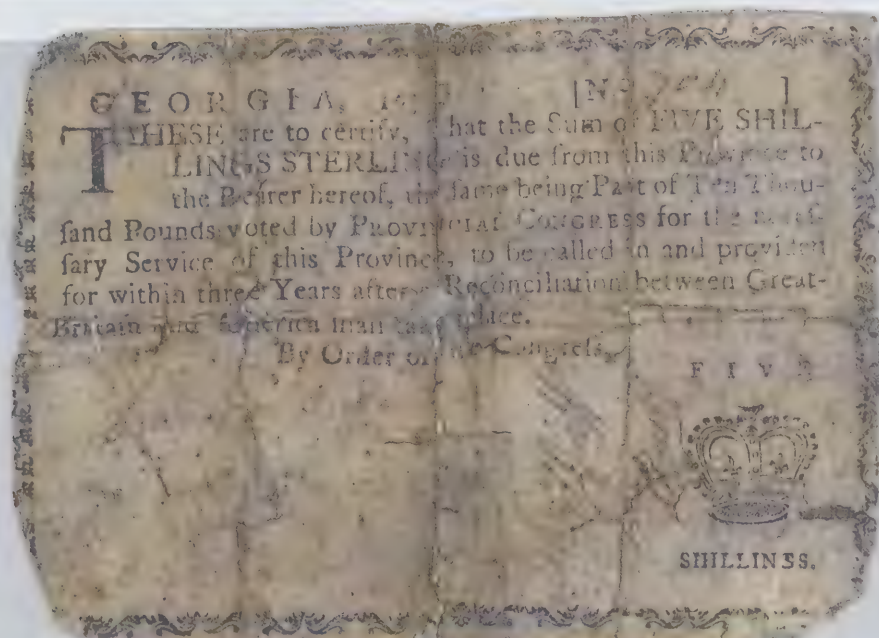 GEORGIA, [No ]
THESE are to certify, That the Sum of FIVE SHIL-
LINGS STERLING is due from this Province to
the Bearer hereof, the ſame being Part of Ten Thou-
ſand Pounds voted by PROVINCIAL CONGRESS for the neceſ-
ſary Service of this Province, to be called in and provided
for within three Years after a Reconciliation between Great-
Britain and America ſhall take place.
By Order of the Congreſs,
FIVE
SHILLINGS.